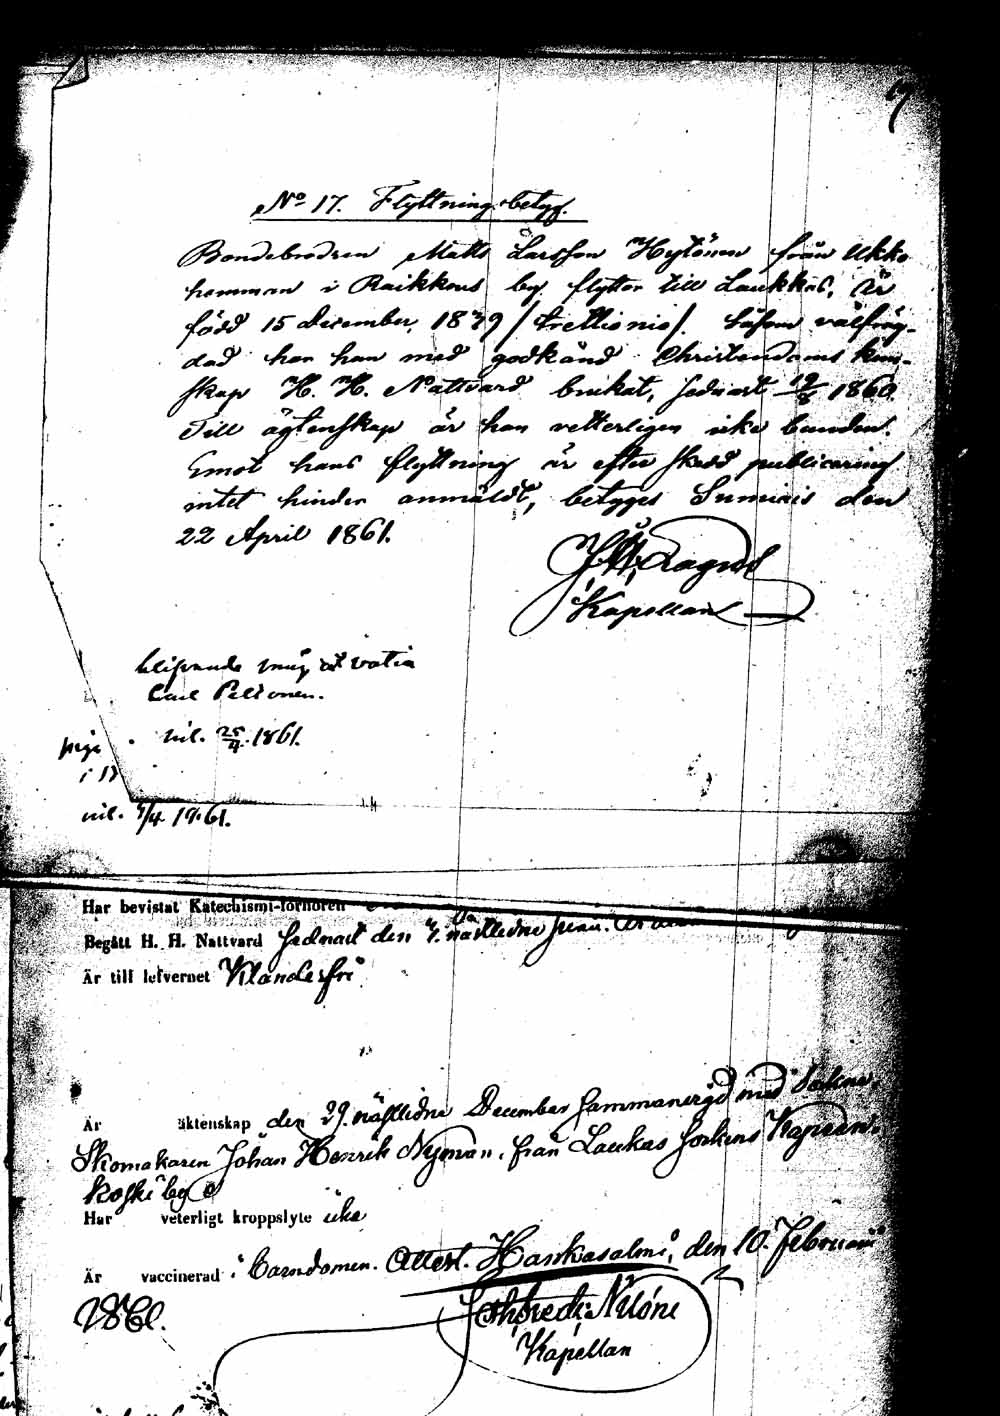 No 17. Flyttningsbetyg.
Bondebrodren Matts Larsson Hytönen från Ukko
hemman i Raikkous by flyttar till Laukkas, är
född 15 December, 1839 / trettionio /. Såsom välfräg-
dad har han med godkänd Christendoms kun-
skap H. H. Nattvard brukat, sednast 19/8 1860.
Till ägtenskap är han vetterligen icke bunden.
Emot hans flyttning är efter skedd publicering
intet hinder anmäldt, betygges Sumiais den
22 April 1861.
Kapellan
Carl Peltonen.
nil. 25/4. 1861.
piga
i 13
nil. 4/4 1861.
Har bevistat Katechismi-förhören
Begått H. H. Nattvard sednast den nästledne
Är till lefvernet klanderfri
Är äktenskap den 29. nästledne December sammanvigd med Sockne
Skomakaren Johan Henrik Nyman, från Laukas sockens
koski by
Har veterligt kroppslyte icke
Är vaccinerad i barndomen. Attest. Hankasalmi, den 10. Februarii
1861.
Kapellan